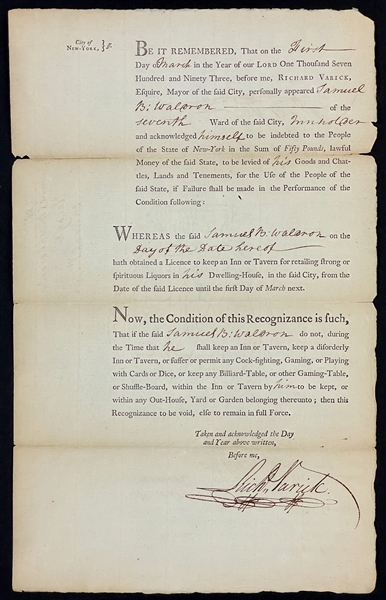 City of
NEW-YORK, } ss.
BE IT REMEMBERED, That on the First
Day March in the Year of our LORD One Thousand Seven
Hundred and Ninety Three, before me, RICHARD VARICK,
Esquire, Mayor of the said City, personally appeared Samuel
B: Waldron of the
seventh Ward of the said City, Innholder
and acknowledged himself to be indebted to the People
of the State of New-York in the Sum of Fifty Pounds, lawful
Money of the said State, to be levied of his Goods and Chat-
tles, Lands and Tenements, for the Use of the People of the
said State, if Failure shall be made in the Performance of the
Condition following:
WHEREAS the said Samuel B: Waldron on the
Day of the Date hereof
hath obtained a Licence to keep an Inn or Tavern for retailing strong or
spirituous Liquors in his Dwelling-House, in the said City, from
the Date of the said Licence until the first Day of March next.
Now, the Condition of this Recognizance is such,
That if the said Samuel B: Waldron do not, during
the Time that he shall keep an Inn or Tavern, keep a disorderly
Inn or Tavern, or suffer or permit any Cock-fighting, Gaming, or Playing
with Cards or Dice, or keep any Billiard-Table, or other Gaming-Table,
or Shuffle-Board, within the Inn or Tavern by him to be kept, or
within any Out-House, Yard or Garden belonging thereunto; then this
Recognizance to be void, else to remain in full Force.
Taken and acknowledged the Day
and Year above written,
Before me,
Richd. Varick.